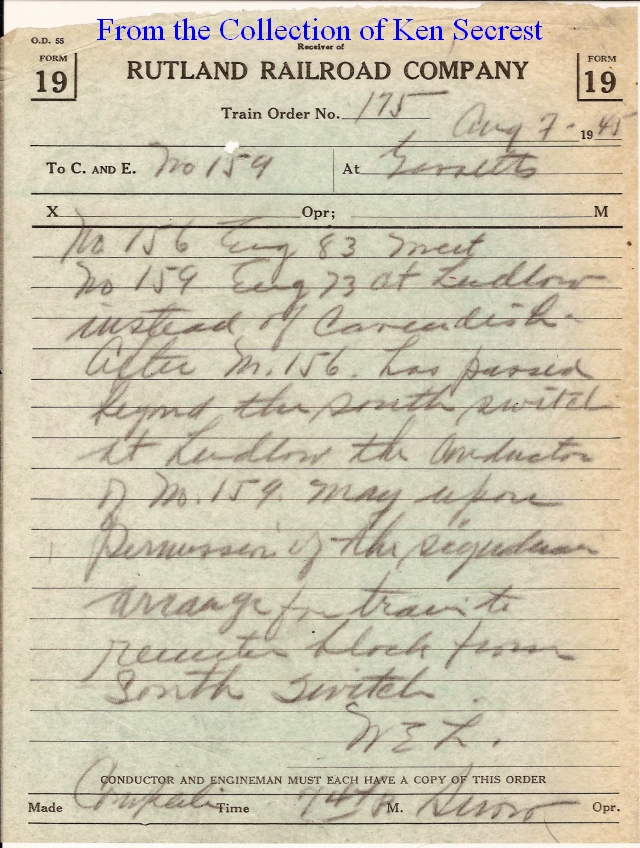 From the Collection of Ken Secrest
O.D. 55
Receiver of
FORM 19
RUTLAND RAILROAD COMPANY
FORM 19
Train Order No. 175
Aug 7 - 1945
To C. AND E. No 159 At
X Opr; M
No 156 Eng 83 meet
No 159 Eng 73 at Ludlow
instead of Cavendish.
After No. 156. has passed
beyond the south switch
at Ludlow the Conductor
of No. 159. may upon
permission of the signalman
arrange for train to
reenter block from
South Switch
W E L.
CONDUCTOR AND ENGINEMAN MUST EACH HAVE A COPY OF THIS ORDER
Made Complete Time M. Opr.